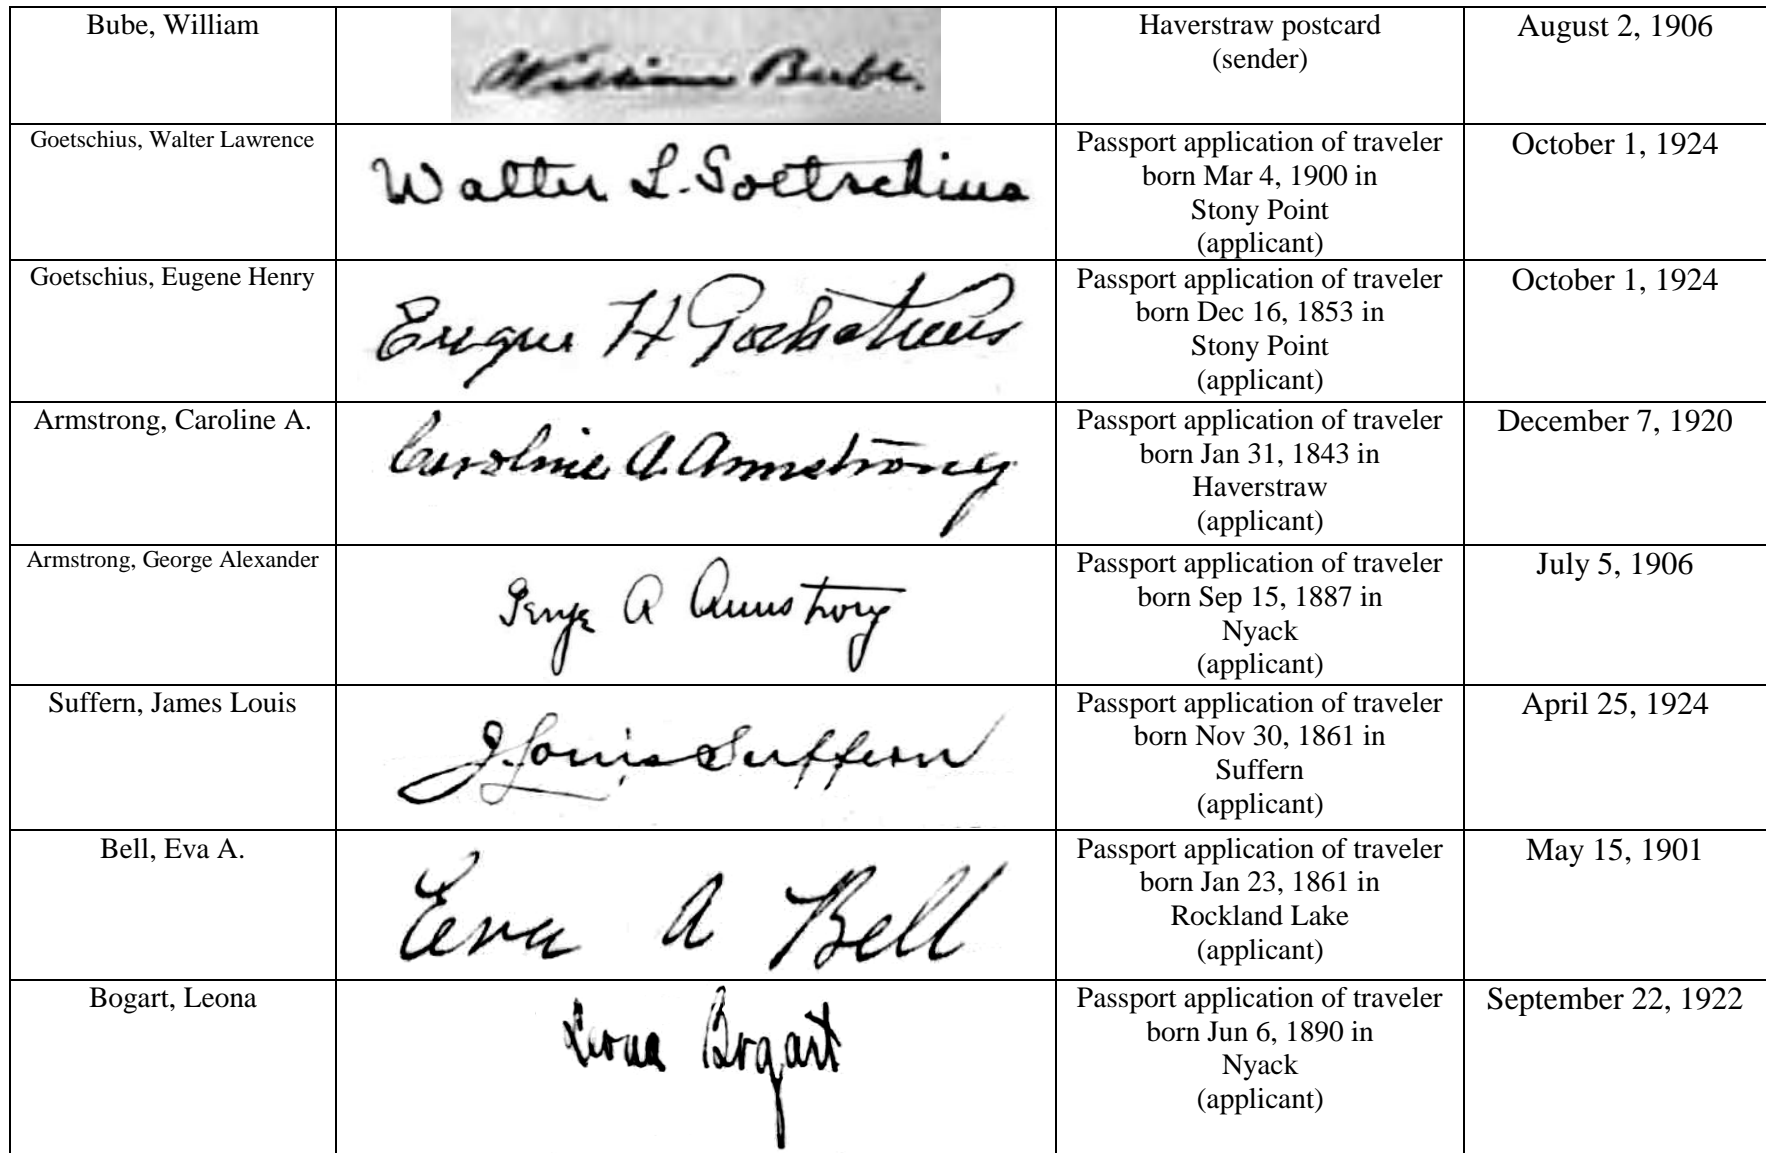 Bube, William
William Bube.
Haverstraw postcard
(sender)
August 2, 1906
Goetschius, Walter Lawrence
Walter L. Goetschius
Passport application of traveler
born Mar 4, 1900 in
Stony Point
(applicant)
October 1, 1924
Goetschius, Eugene Henry
Eugene H Goetschius
Passport application of traveler
born Dec 16, 1853 in
Stony Point
(applicant)
October 1, 1924
Armstrong, Caroline A.
Caroline A. Armstrong
Passport application of traveler
born Jan 31, 1843 in
Haverstraw
(applicant)
December 7, 1920
Armstrong, George Alexander
George A Armstrong
Passport application of traveler
born Sep 15, 1887 in
Nyack
(applicant)
July 5, 1906
Suffern, James Louis
J. Louis Suffern
Passport application of traveler
born Nov 30, 1861 in
Suffern
(applicant)
April 25, 1924
Bell, Eva A.
Eva A Bell
Passport application of traveler
born Jan 23, 1861 in
Rockland Lake
(applicant)
May 15, 1901
Bogart, Leona
Leona Bogart
Passport application of traveler
born Jun 6, 1890 in
Nyack
(applicant)
September 22, 1922